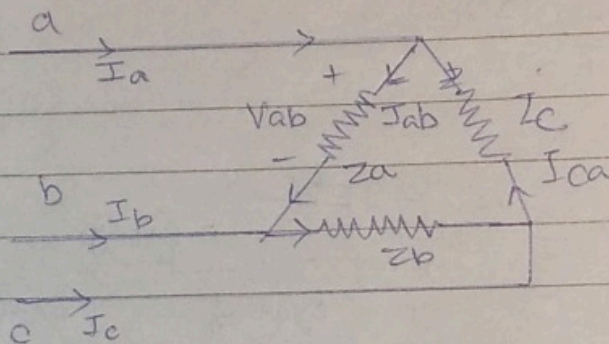 a
Ia
+
Vab
Iab
Zc
-
za
Ica
b
Ib
zb
c
Ic